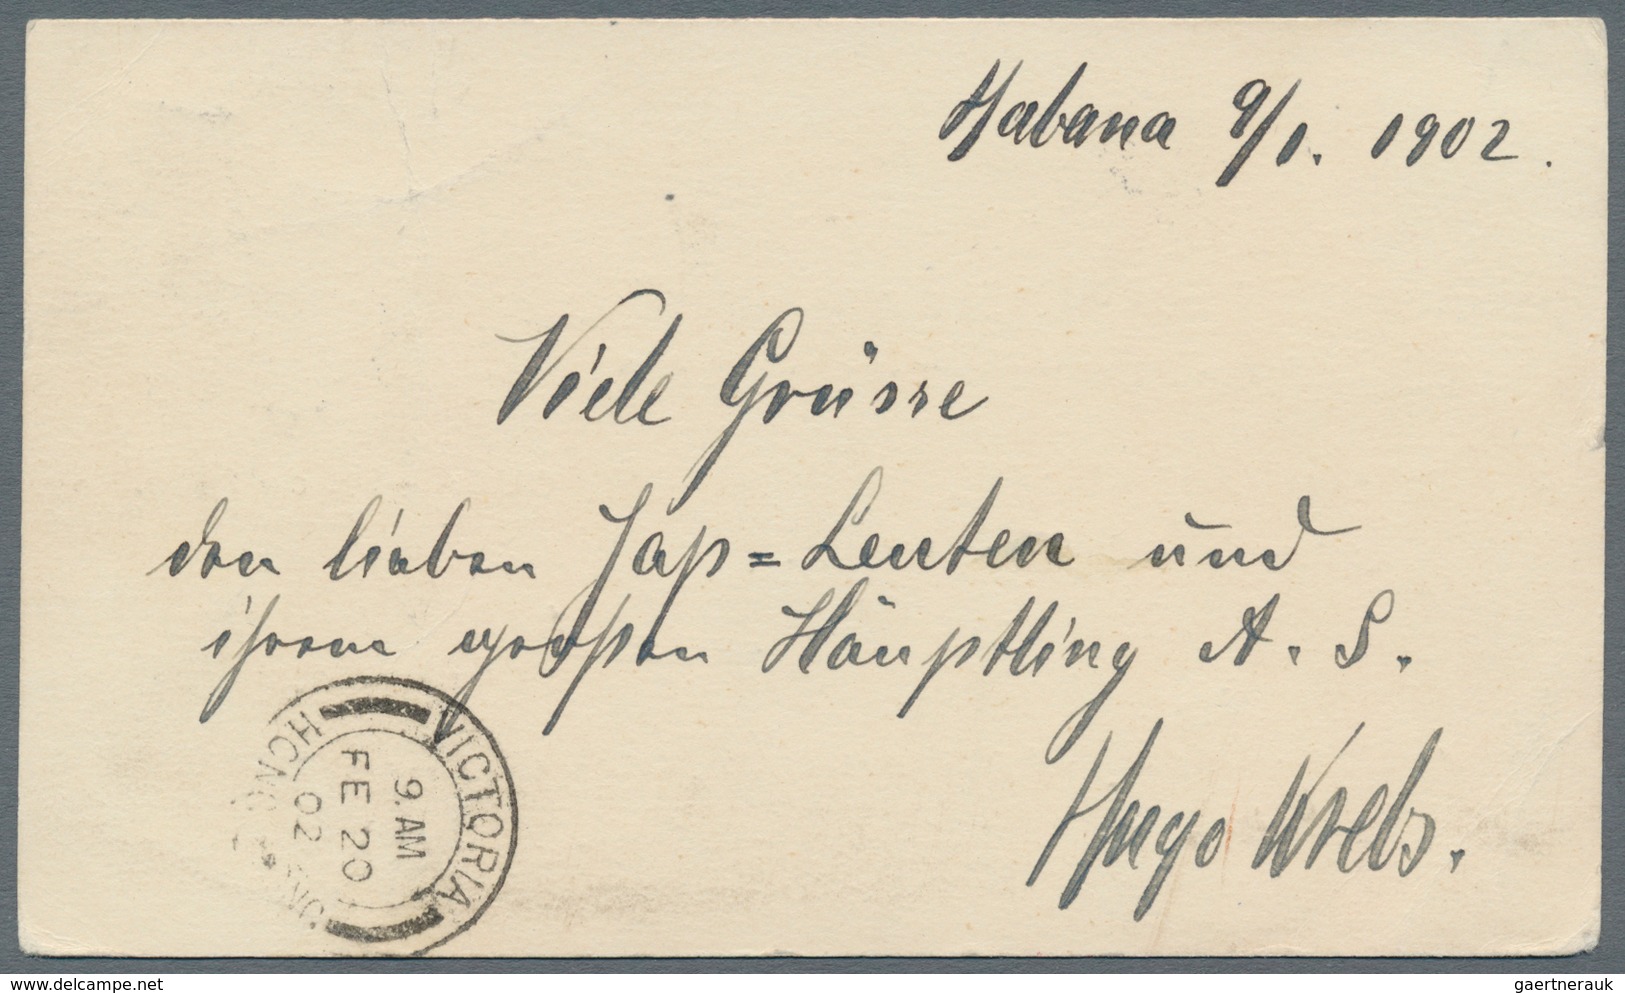 Habana 9/1. 1902.
Viele Grüsse
den lieben Jap=Leuten und
ihrem großen Häuptling A. S.
Hugo Krebs.
VICTORIA
HONG KONG
9. AM
FE 20
02
delcampe.net
gaertnerauk